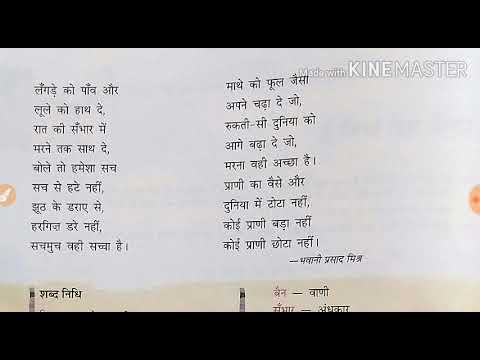 Made with KINEMASTER
लँगड़े को पाँव और
लूले को हाथ दे,
रात की सँभार में
मरने तक साथ दे,
बोले तो हमेशा सच
सच से हटे नहीं,
झूठ के डराए से,
हरगिज़ डरे नहीं,
सचमुच वही सच्चा है।
माथे को फूल जैसा
अपने चढ़ा दे जो,
रुकती-सी दुनिया को
आगे बढ़ा दे जो,
मरना वही अच्छा है।
प्राणी का वैसे और
दुनिया में टोटा नहीं,
कोई प्राणी बड़ा नहीं
कोई प्राणी छोटा नहीं।
—भवानी प्रसाद मिश्र
शब्द निधि
बैन — वाणी
सँभार — अंधकार